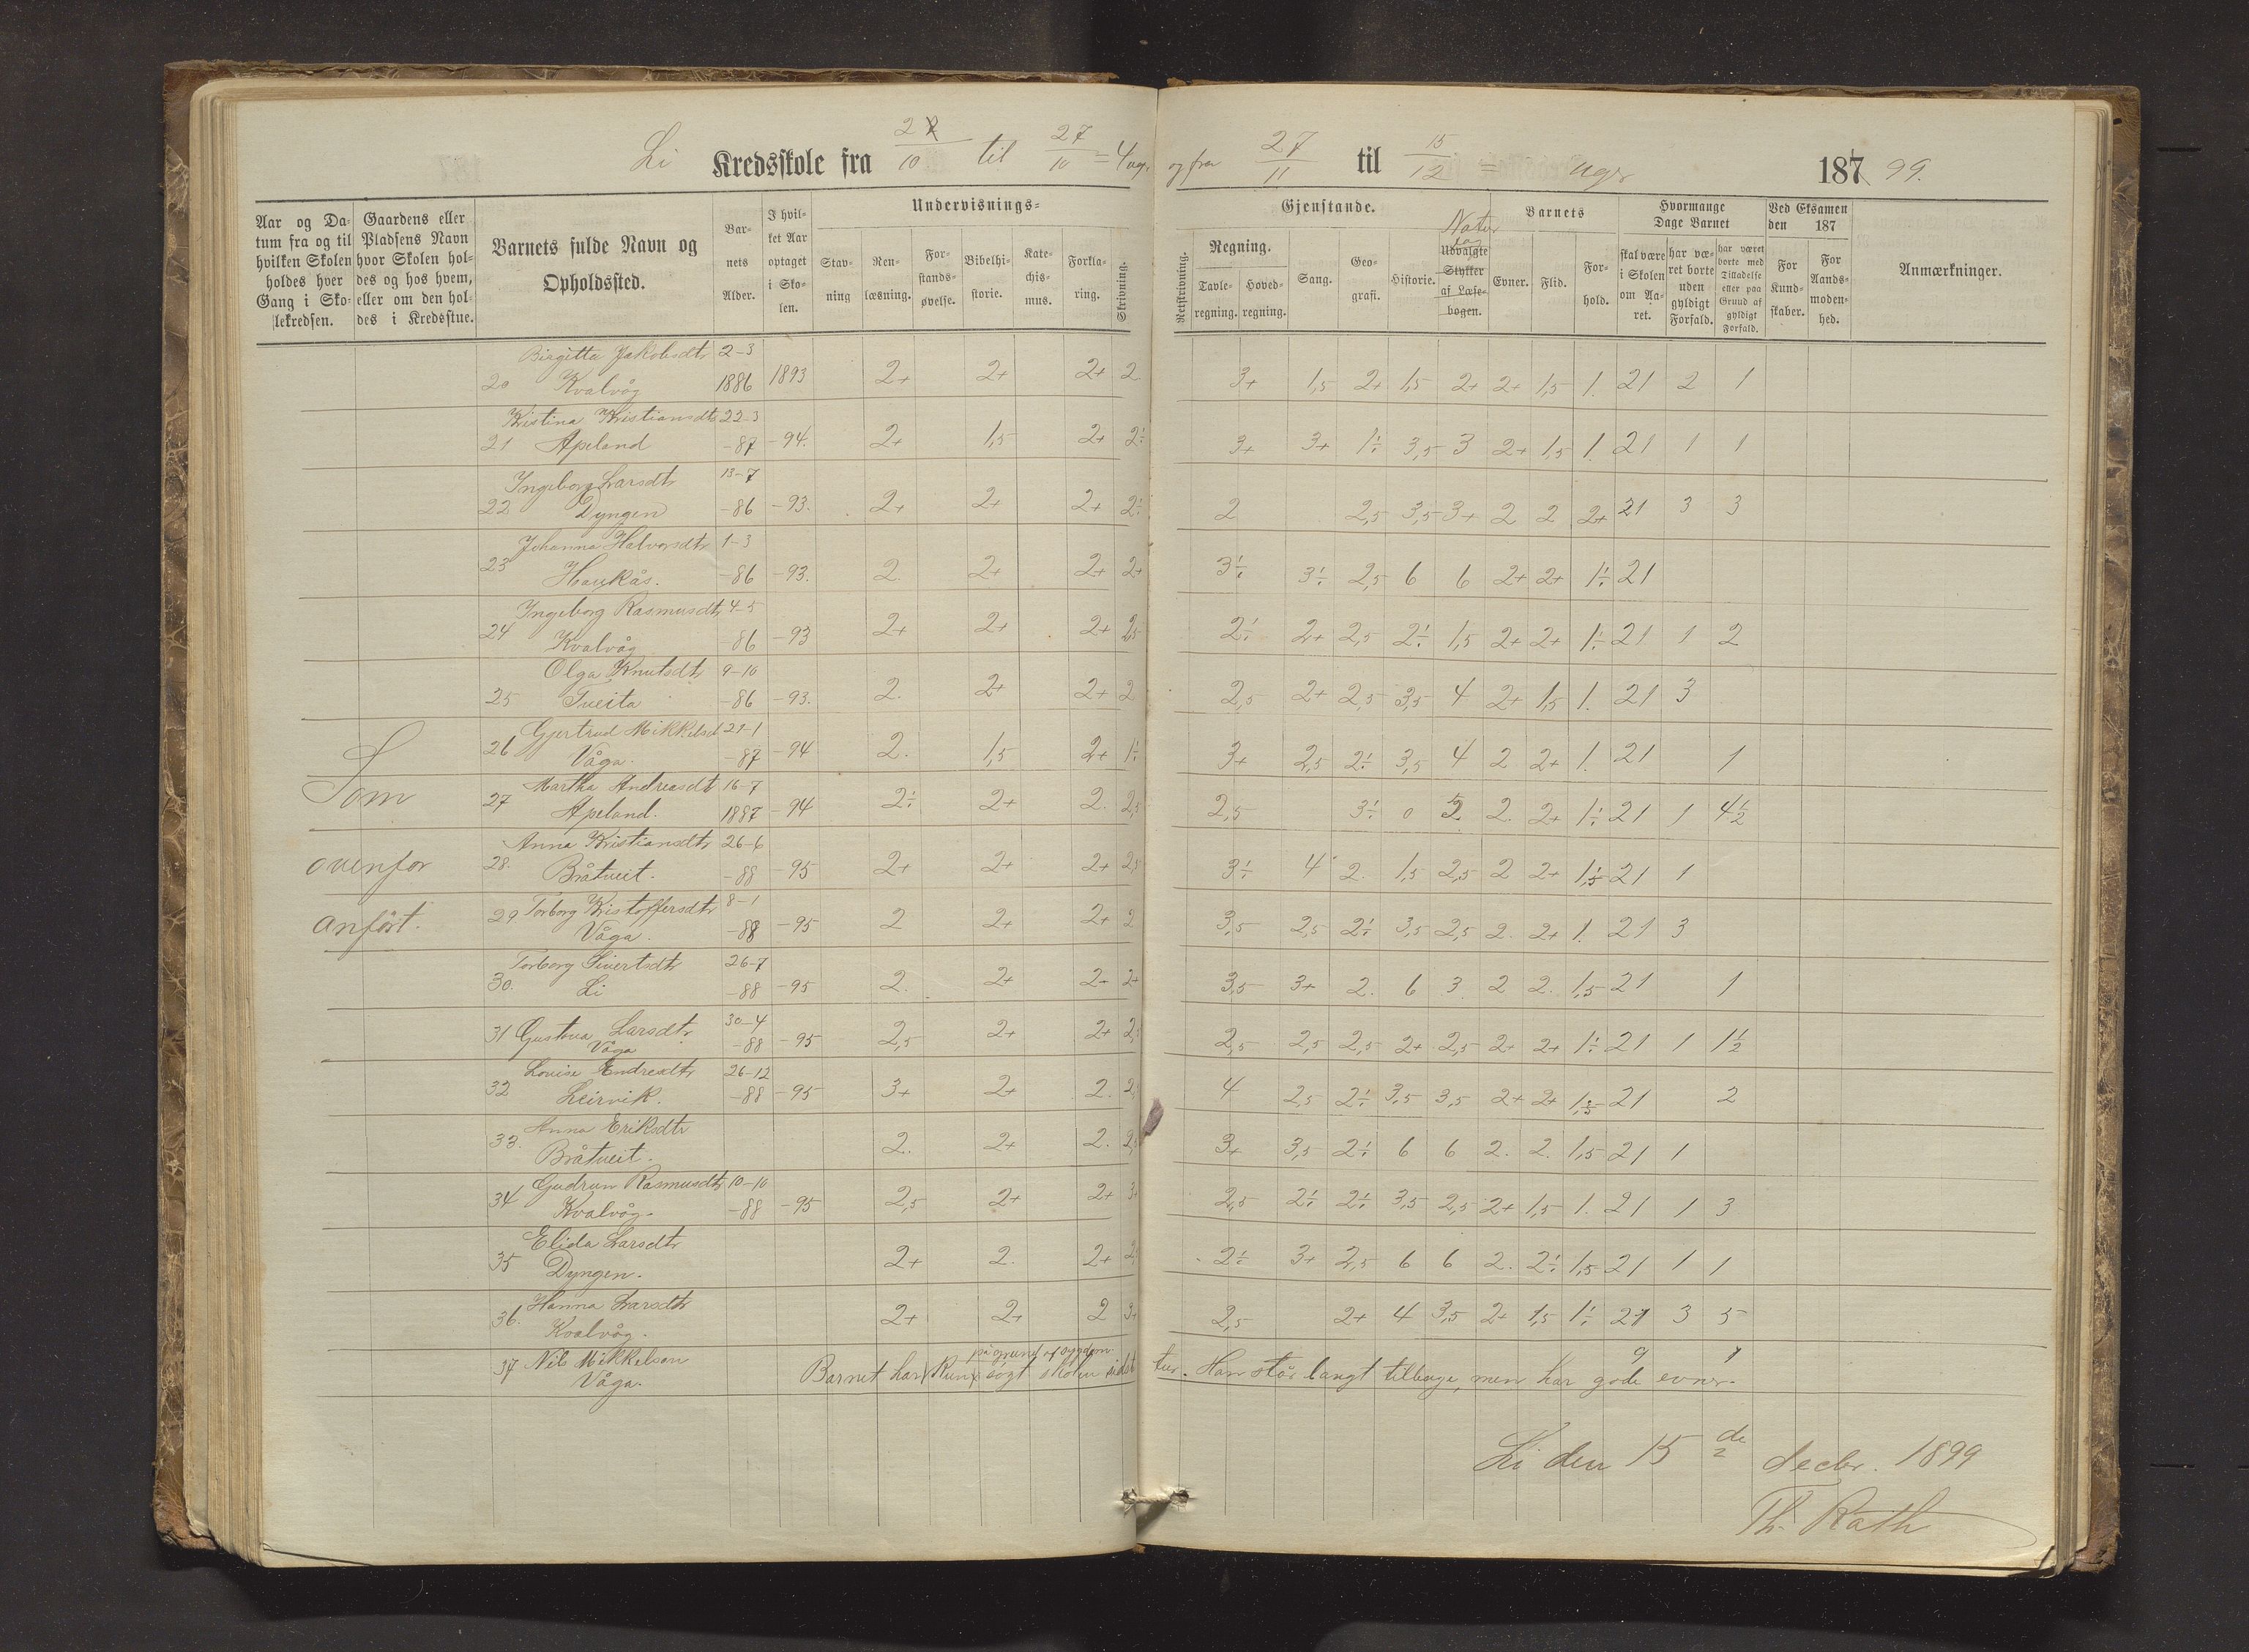 Li Kredsskole fra 2/10 til 27/10 = 4 ug. og fra 27/11 til 15/12 = Uger 187 99.
Aar og Datum fra og til hvilken Skolen holdes hver Gang i Skolekredsen.
Gaardens eller Pladsens Navn hvor Skolen holdes og hos hvem, eller om den holdes i Kredsstue.
Barnets fulde Navn og Opholdssted.
Barnets Alder.
I hvilket Aar optaget i Skolen.
Undervisnings-
Stavning
Renlæsning.
Forstandsøvelse.
Bibelhistorie.
Katechismus.
Forklaring.
Skrivning.
Gjenstande.
Retskrivning.
Regning.
Tavleregning.
Hovedregning.
Sang.
Geografi.
Historie.
Natur
fag
Udvalgte Stykker af Læsebogen.
Barnets
Evner.
Flid.
Forhold.
Hvormange Dage Barnet
skal være i Skolen om Aaret.
har været borte uden gyldigt Forfald.
har været borte med Tilladelse eller paa Grund af gyldigt Forfald.
Ved Eksamen den 187
For Kundskaber.
For Aandsmodenhed.
Anmærkninger.
20 Birgitta Jakobsdtr Kvalvåg 2-3 1886 1893 2+ 2+ 2+ 2 3+ 1,5 2+ 1,5 2+ 2+ 1,5 1. 21 2 1
21 Kristina Kristiansdtr Apeland 22-3 -87 -94. 2+ 1,5 2+ 2÷ 3+ 3+ 1÷ 3,5 3 2+ 1,5 1. 21 1 1
22 Ingeborg Larsdtr Dyngen 13-7 -86 -93. 2+ 2+ 2+ 2÷ 2 2,5 3,5 3+ 2 2 2+ 21 3 3
23 Johanna Halvorsdtr Haukås. 1-3 -86 -93. 2. 2+ 2+ 2+ 3÷ 3÷ 2,5 6 6 2+ 2+ 1÷ 21
24 Ingeborg Rasmusdtr Kvalvåg 4-5 -86 -93 2+ 2+ 2+ 2,5 2÷ 2+ 2,5 2÷ 1,5 2+ 2+ 1÷ 21 1 2
25 Olga Knutsdtr Tveita 9-10 -86 -93. 2. 2+ 2+ 2 2,5 2+ 2,5 3,5 4 2+ 1,5 1. 21 3
26 Gjertrud Mikkelsd Våga. 21-1 -87 -94 2. 1,5 2+ 1÷ 3+ 2,5 2÷ 3,5 4 2 2+ 1. 21 1
Som
27 Martha Andreasdt Apeland. 16-7 1887 -94 2÷ 2+ 2. 2,5 2,5 3÷ 0 2. 2+ 1÷ 21 1 4½
ovenfor
28. Anna Kristiansdtr Bråtveit. 26-6 -88 -95 2+ 2+ 2+ 2,5 3÷ 4 2. 1,5 2,5 2 2+ 1,5 21 1
anført.
29 Torborg Kristoffersdtr Våga. 8-1 -88 -95 2 2+ 2+ 2 3,5 2,5 2÷ 3,5 2,5 2. 2+ 1. 21 3
30. Torborg Sivertsdtr Li 26-7 -88 -95 2. 2+ 2+ 2+ 3,5 3+ 2. 6 3 2 2. 1,5 21 1
31 Gustava Larsdtr Våga 30-4 -88 -95 2,5 2+ 2+ 2,5 2,5 2,5 2,5 2+ 2,5 2+ 2+ 1÷ 21 1 1½
32 Lovise Endresdtr Leirvik. 26-12 -88 -95 3+ 2+ 2. 4 2,5 2÷ 3,5 3,5 2+ 2+ 1,5 21 2
33. Anna Eriksdtr Bråtveit. 2. 2+ 2. 2,5 3+ 3,5 2÷ 6 6 2. 2. 1,5 21 1
34 Gudrun Rasmusdtr Kvalvåg. 10-10 -88 -95 2,5 2+ 2+ 3+ 2,5 2÷ 2÷ 3,5 2,5 2+ 1,5 1. 21 1 3
35 Elida Larsdtr Dyngen. 2+ 2. 2+ 2÷ 3+ 2,5 6 6 2. 2÷ 1,5 21 1 1
36. Hanna Larsdtr Kvalvåg. 2+ 2+ 2 3+ 2,5 2+ 4 3,5 2+ 1,5 1÷ 21 3 5
på grund af sygdom
37 Nils Mikkelsen Våga. Barnet har kun søgt skolen sidst tur. Han står langt tilbage, men har gode evner. 9 9
Li den 15 de decbr. 1899
Th. Rath